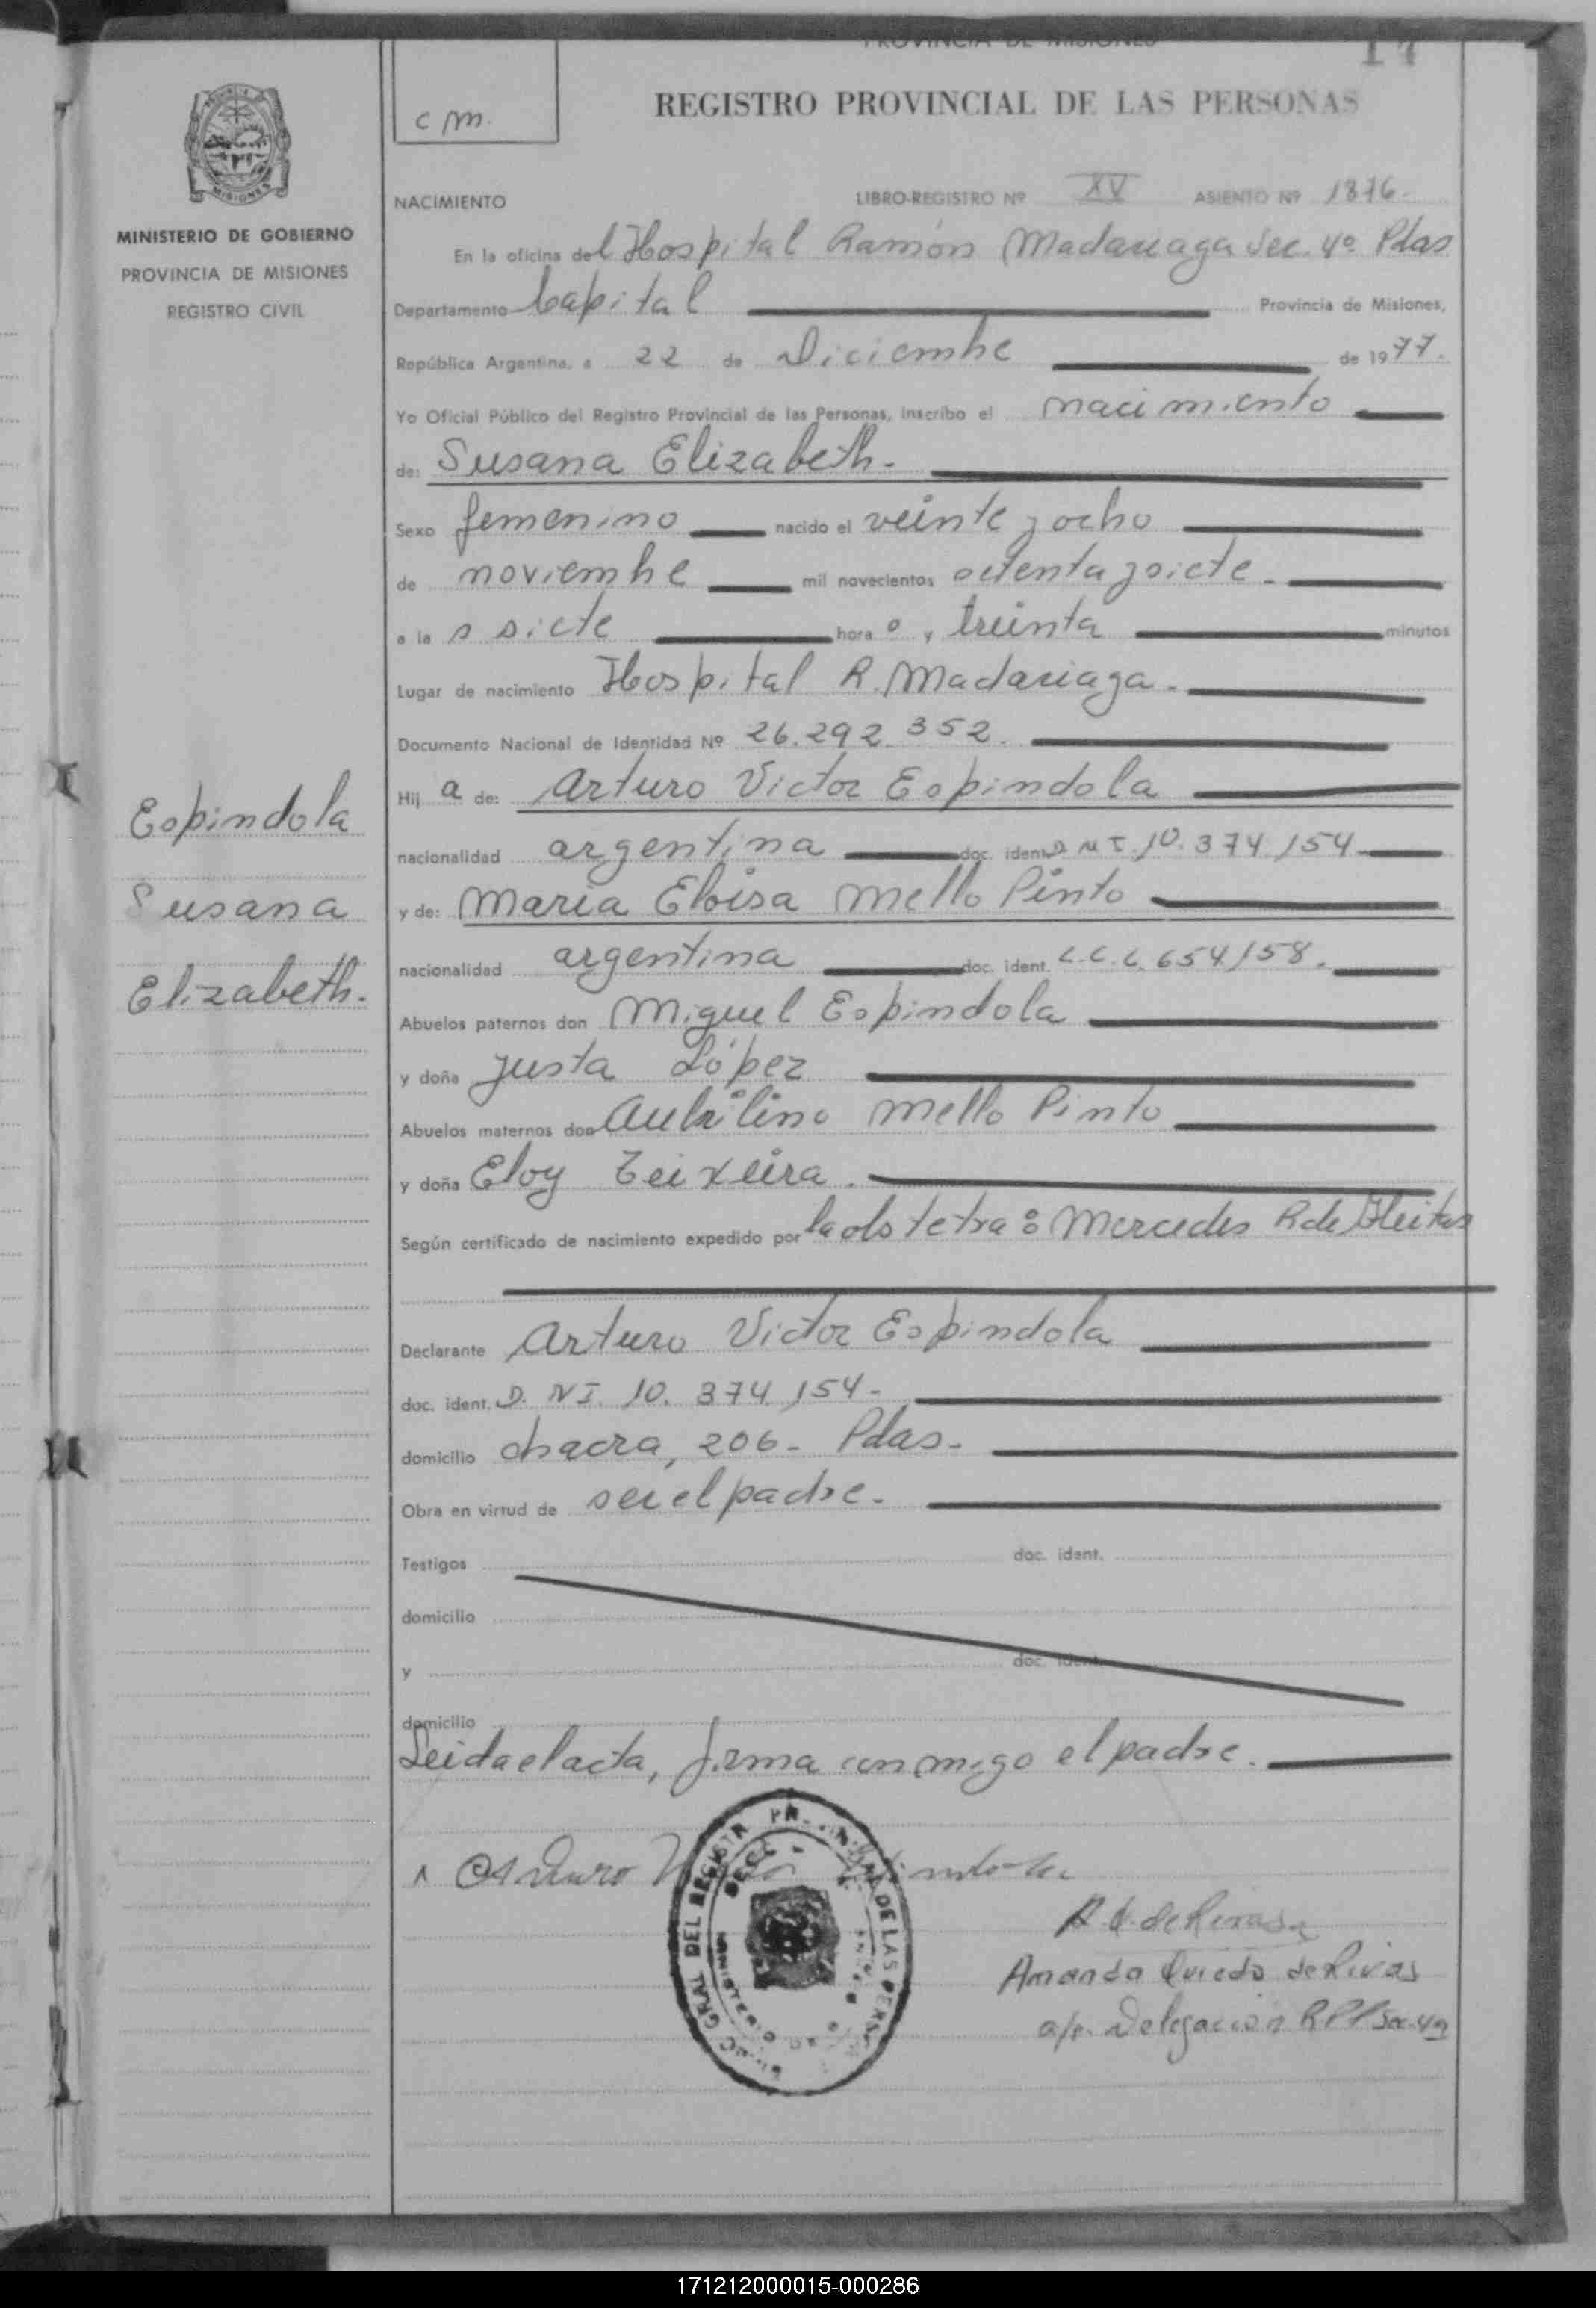 PROVINCIA DE MISIONES
17
REGISTRO PROVINCIAL DE LAS PERSONAS
c m.
MISIONES
MINISTERIO DE GOBIERNO
PROVINCIA DE MISIONES
REGISTRO CIVIL
NACIMIENTO LIBRO-REGISTRO Nº XV ASIENTO Nº 1376.
En la oficina del Hospital Ramón Madariaga Sec. 4º Pdas
Departamento Capital Provincia de Misiones,
República Argentina, a 22 de Diciembre de 1977.
Yo Oficial Público del Registro Provincial de las Personas, inscribo el nacimiento
de: Susana Elizabeth.
Sexo femenino nacido el veinte y ocho
de noviembre mil novecientos setenta y siete.
a la s siete hora s, treinta minutos
Lugar de nacimiento Hospital R. Madariaga.
Documento Nacional de Identidad Nº 26.292.352.
Hij a de: Arturo Victor Espindola
nacionalidad argentina doc. ident. D N I. 10.374.154
y de: Maria Eloisa Mello Pinto
nacionalidad argentina doc. ident. L.C. 6.654.158.
Abuelos paternos don Miguel Espindola
y doña Justa López
Abuelos maternos don Mello Pinto
y doña Eloy Teixeira.
Según certificado de nacimiento expedido por la obstetra: Mercedes R de Fleitas
Declarante Arturo Victor Espindola
doc. ident. D. N I. 10. 374.154-
domicilio chacra, 206- Pdas-
Obra en virtud de ser el padre.
Testigos doc. ident.
domicilio
y doc. ident.
domicilio
Leida el acta, firma conmigo el padre.
Espindola
Susana
Elizabeth.
Arturo
GRAL DEL REGISTR DE LAS PERS
Amanda Oviedo de Rivas
a/c. Delegación R P P Sec. 4a
171212000015-000286